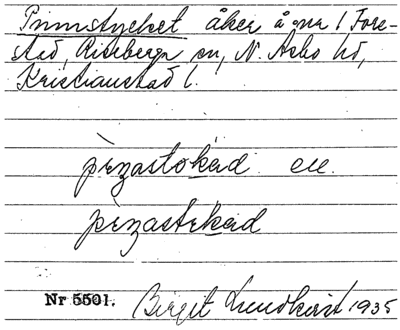 Pinnstycket åker å nr 1 Fore-
stad, Riseberga sn, N. Åsbo hd,
Kristianstad l.
pinastokad eu.
pinastekad
Nr 5501. Birgit Lundkvist 1935